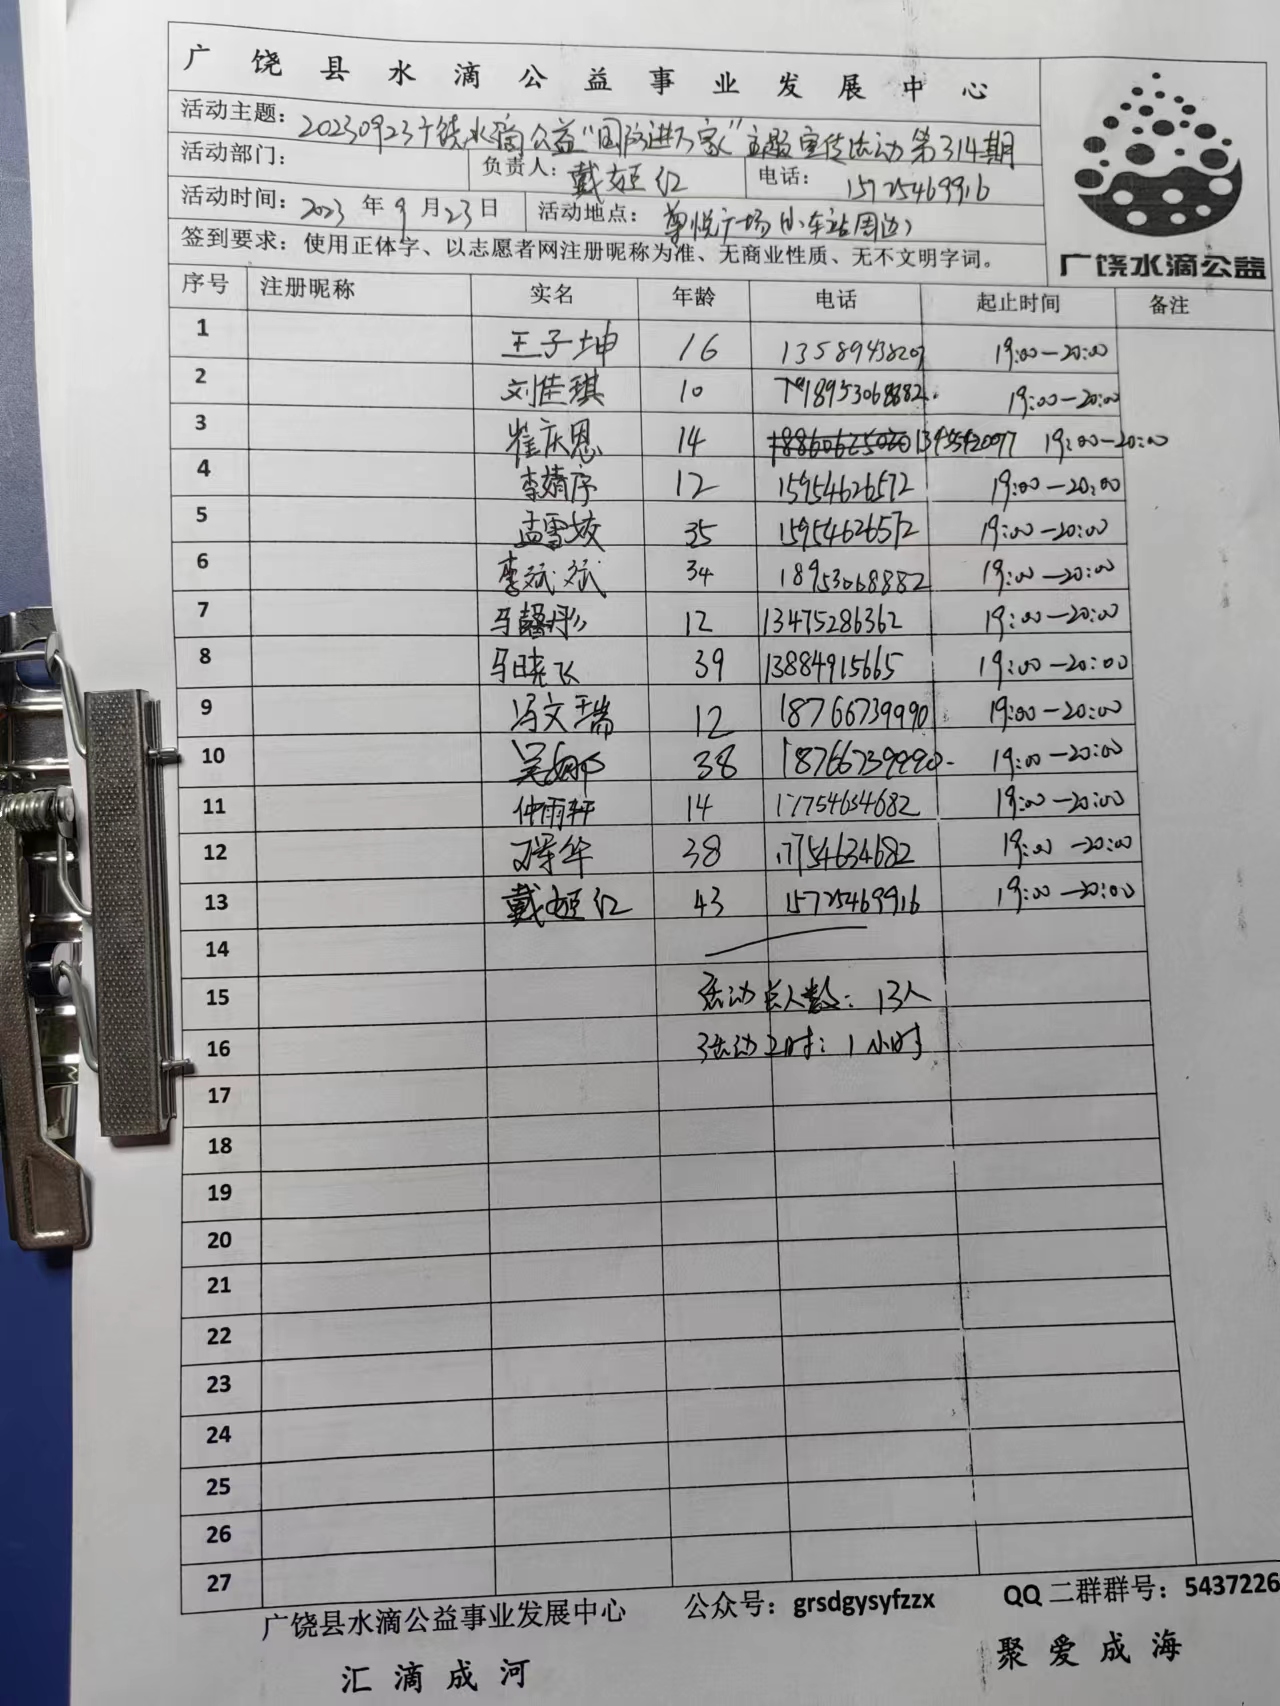 广饶县水滴公益事业发展中心
活动主题：20230923广饶水滴公益“国防进万家”主题宣传活动第314期
活动部门： 负责人：戴姬红 电话：15725469916
活动时间：2023年9月23日 活动地点：尊悦广场（小车站周边）
签到要求：使用正体字、以志愿者网注册昵称为准、无商业性质、无不文明字词。
广饶水滴公益
序号 注册昵称 实名 年龄 电话 起止时间 备注
1 王子坤 16 13589438207 19:00—20:00
2 刘佳琪 10 18953068882 19:00—20:00
3 崔庆恩 14 19:00—20:00
4 李婧序 12 15954626572 19:00—20:00
5 孟雪姣 35 15954626572 19:00—20:00
6 李斌斌 34 18953068882 19:00—20:00
7 马馨彤 12 13475286362 19:00—20:00
8 马晓飞 39 13884915665 19:00—20:00
9 冯文瑞 12 18766739990 19:00—20:00
10 吴娜 38 18766739990 19:00—20:00
11 仲雨轩 14 17754634682 19:00—20:00
12 38 17754634682 19:00—20:00
13 戴姬红 43 15725469916 19:00—20:00
14
15 活动总人数：13人
16 活动工时：1小时
17
18
19
20
21
22
23
24
25
26
27
广饶县水滴公益事业发展中心 公众号：grsdgysyfzzx QQ二群群号：5437226
汇滴成河 聚爱成海